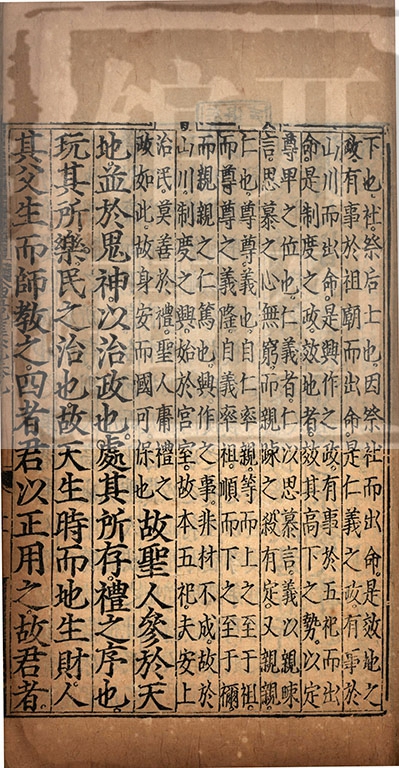 下也社祭后土也因祭社而出命是效地之
政有事於祖廟而出命是仁義之政有事於
山川而出命是興作之政有事於五祀而出
命是制度之政效地者效其高下之勢以定
尊卑之位也仁義者仁以思慕言義以親疎
言思慕之心無窮而親疎之殺有定又親親
仁也尊尊義也自仁率親等而上之至于祖
而尊尊之義隆自義率祖順而下之至于禰
而親親之仁篤也興作之事非材不成故於
山川制度之興始於宮室故本五祀夫安上
治民莫善於禮聖人庸禮之
政如此故身安而國可保也
故聖人參於天
地並於鬼神以治政也處其所存禮之序也
玩其所樂民之治也故天生時而地生財人
其父生而師教之四者君以正用之故君者